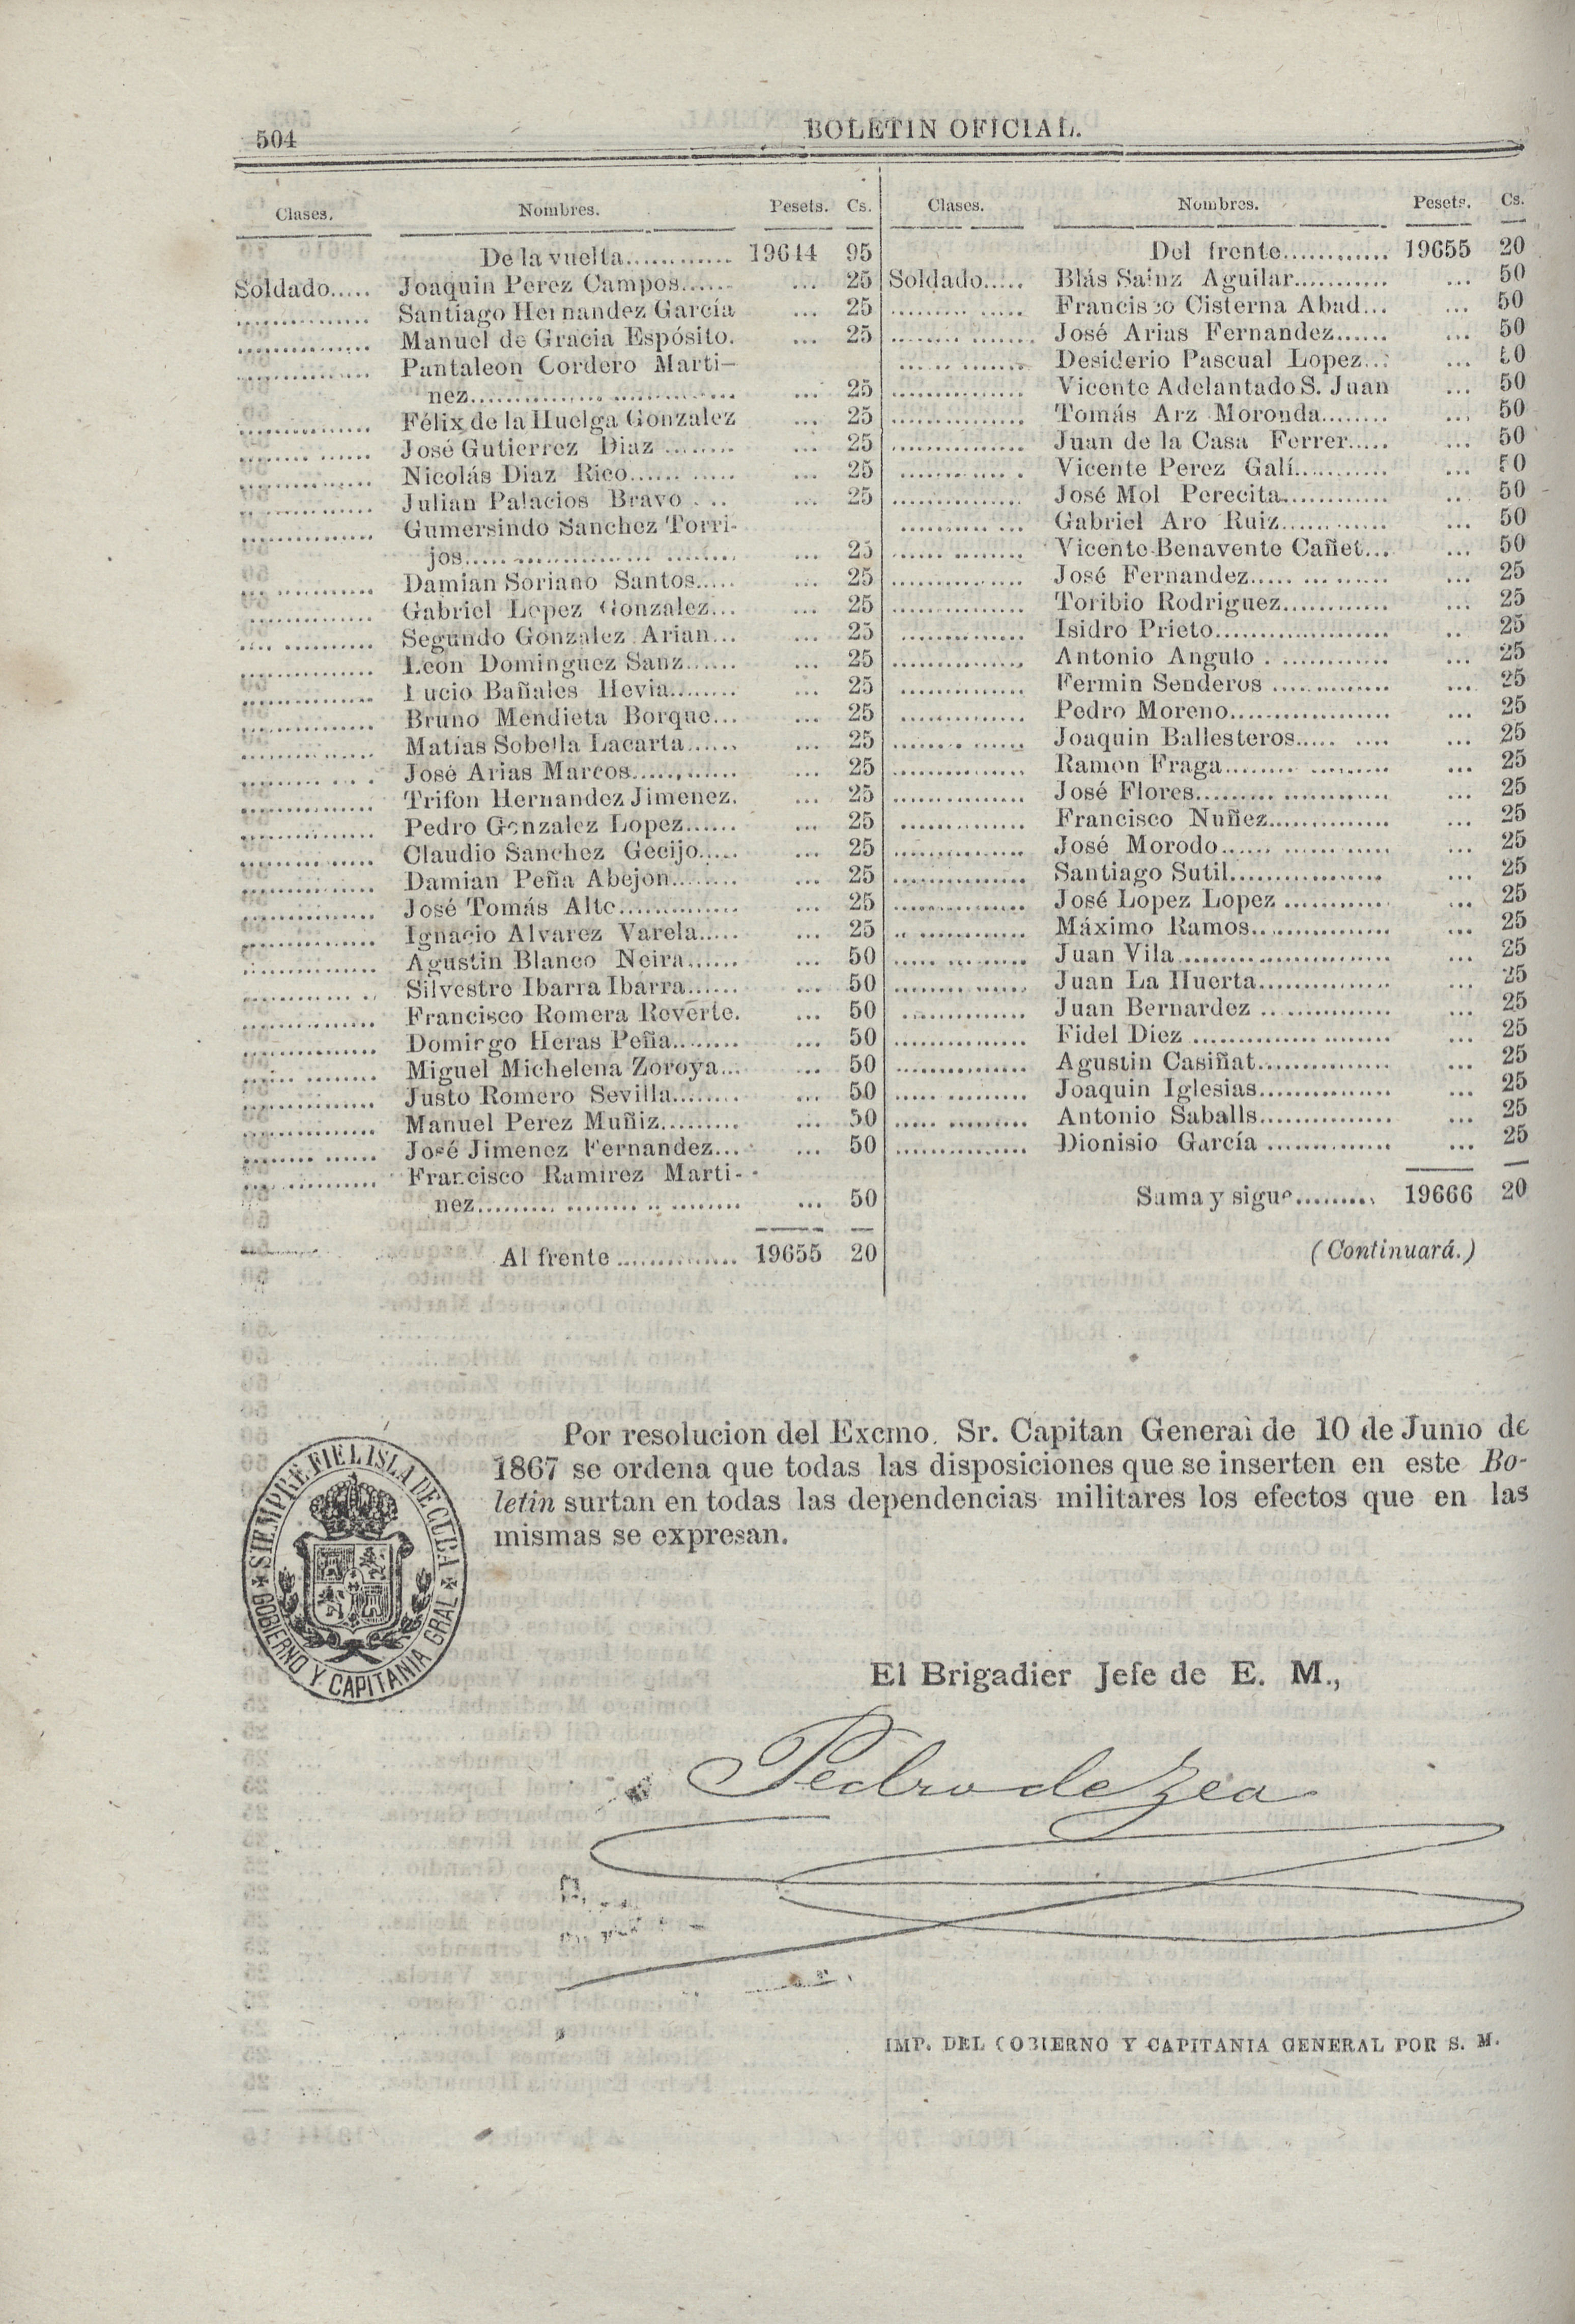 504
BOLETIN OFICIAL.
Clases. Nombres. Pesets. Cs.
De la vuelta............ 19644 95
Soldado..... Joaquin Perez Campos...... ... 25
.............. Santiago Hernandez García ... 25
.............. Manuel de Gracia Espósito. ... 25
.............. Pantaleon Cordero Marti-
nez.............. .............. ... 25
.............. Félix de la Huelga Gonzalez ... 25
........ ...... José Gutierrez Diaz ........ ... 25
.............. Nicolás Diaz Rico...... ..... ... 25
.. ........... Julian Palacios Bravo . .. ... 25
.............. Gumersindo Sanchez Torri-
jos..... ................... ........ ... 25
... ........... Damian Soriano Santos..... ... 25
.............. Gabriel Lopez Gonzalez... ... 25
.... .......... Segundo Gonzalez Arian... ... 25
.............. Leon Dominguez Sanz...... ... 25
.............. Lucio Bañales Hevia........ ... 25
.............. Bruno Mendieta Borque... ... 25
.............. Matías Sobella Lacarta...... ... 25
........ .. . . José Arias Marcos............ ... 25
.............. Trifon Hernandez Jimenez. ... 25
.............. Pedro Gonzalez Lopez...... ... 25
.............. Claudio Sanchez Gecijo..... ... 25
.............. Damian Peña Abejon........ ... 25
.............. José Tomás Alte.............. ... 25
.............. Ignacio Alvarez Varela..... ... 25
.............. Agustin Blanco Neira...... ... 50
........... . . Silvestre Ibarra Ibarra...... ... 50
.............. Francisco Romera Reverte. ... 50
.............. Domingo Heras Peña........ ... 50
...... ........ Miguel Michelena Zoroya... ... 50
.............. Justo Romero Sevilla........ ... 50
.............. Manuel Perez Muñiz......... ... 50
........ ...... José Jimenez Fernandez... ... 50
.............. Francisco Ramirez Marti-
nez......... ........ .. ........ ... 50
Al frente .............. 19655 20
Clases. Nombres. Pesets. Cs.
Del frente............ 19655 20
Soldado..... Blás Sainz Aguilar........... ... 50
......... ..... Francisco Cisterna Abad... ... 50
........ ....... José Arias Fernandez...... ... 50
..... ........ Desiderio Pascual Lopez... ... 50
.............. Vicente Adelantado S. Juan ... 50
.............. Tomás Arz Moronda........ ... 50
.............. Juan de la Casa Ferrer..... ... 50
........... . Vicente Perez Galí........... ... 50
.............. José Mol Perecita............ .. 50
.......... ... Gabriel Aro Ruiz............ ... 50
...... ........ Vicente Benavente Cañet... ... 50
.............. José Fernandez..... ... ...... ... 25
.............. Toribio Rodriguez............ ... 25
.............. Isidro Prieto.................... .. 25
.............. Antonio Angulo . ............ ... 25
.............. Fermin Senderos ............. ... 25
.............. Pedro Moreno.................. ... 25
........ ...... Joaquin Ballesteros..... .... ... 25
.............. Ramon Fraga........ ......... ... 25
.............. José Flores......... ............ ... 25
.............. Francisco Nuñez.............. ... 25
.............. José Morodo...... ............ ... 25
.............. Santiago Sutil................. ... 25
.............. José Lopez Lopez ............ ... 25
.. ............ Máximo Ramos................ ... 25
..... ... ...... Juan Vila........................ ... 25
........ ...... Juan La Huerta............... ... 25
.............. Juan Bernardez .. ............ ... 25
.............. Fidel Diez ............. ........ ... 25
.............. Agustin Casiñat............... ... 25
..... ......... Joaquin Iglesias............... ... 25
..... ......... Antonio Saballs............... ... 25
.............. Dionisio García .............. ... 25
Suma y sigue......... 19666 20
(Continuará.)
Por resolucion del Excmo. Sr. Capitan General de 10 de Junio de
1867 se ordena que todas las disposiciones que se inserten en este Bo-
letin surtan en todas las dependencias militares los efectos que en las
mismas se expresan.
SIEMPRE FIEL ISLA DE CUBA
GOBIERNO Y CAPITANIA GRAL
El Brigadier Jefe de E. M.,
Pedro de Zea
IMP. DEL GOBIERNO Y CAPITANIA GENERAL POR S. M.